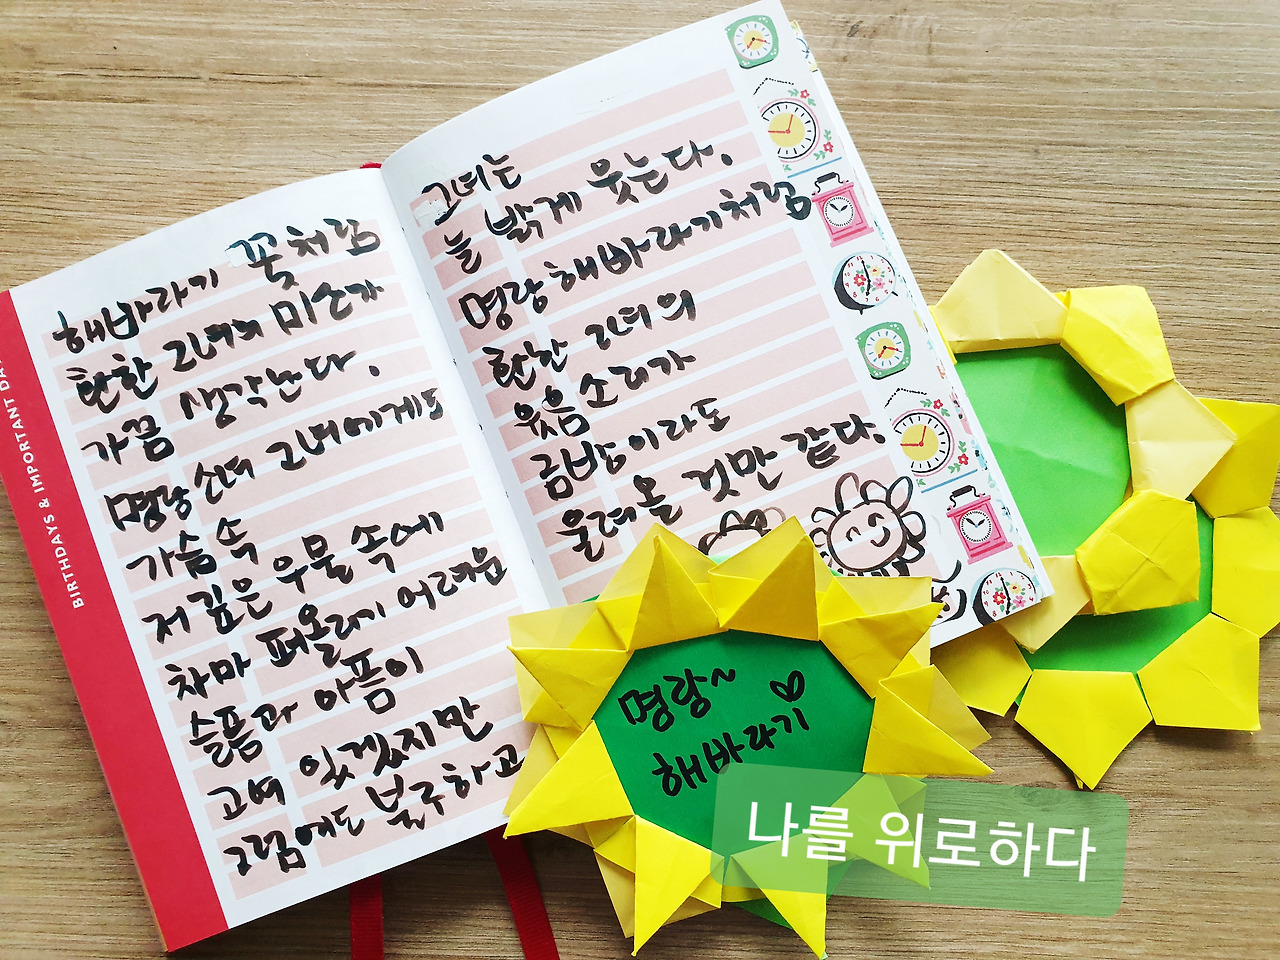 BIRTHDAYS & IMPORTANT DA
해바라기 꽃처럼
환한 그녀의 미소가
가끔 생각난다.
명랑 소녀 그녀에게도
가슴 속
저 깊은 우물 속에
차마 퍼올리기 어려운
슬픔과 아픔이
고여 있겠지만
그럼에도 불구하고
그녀는
늘 밝게 웃는다.
명랑 해바라기처럼
환한 그녀의
웃음소리가
금방이라도
울려올 것만 같다.
명랑~
해바라기
나를 위로하다